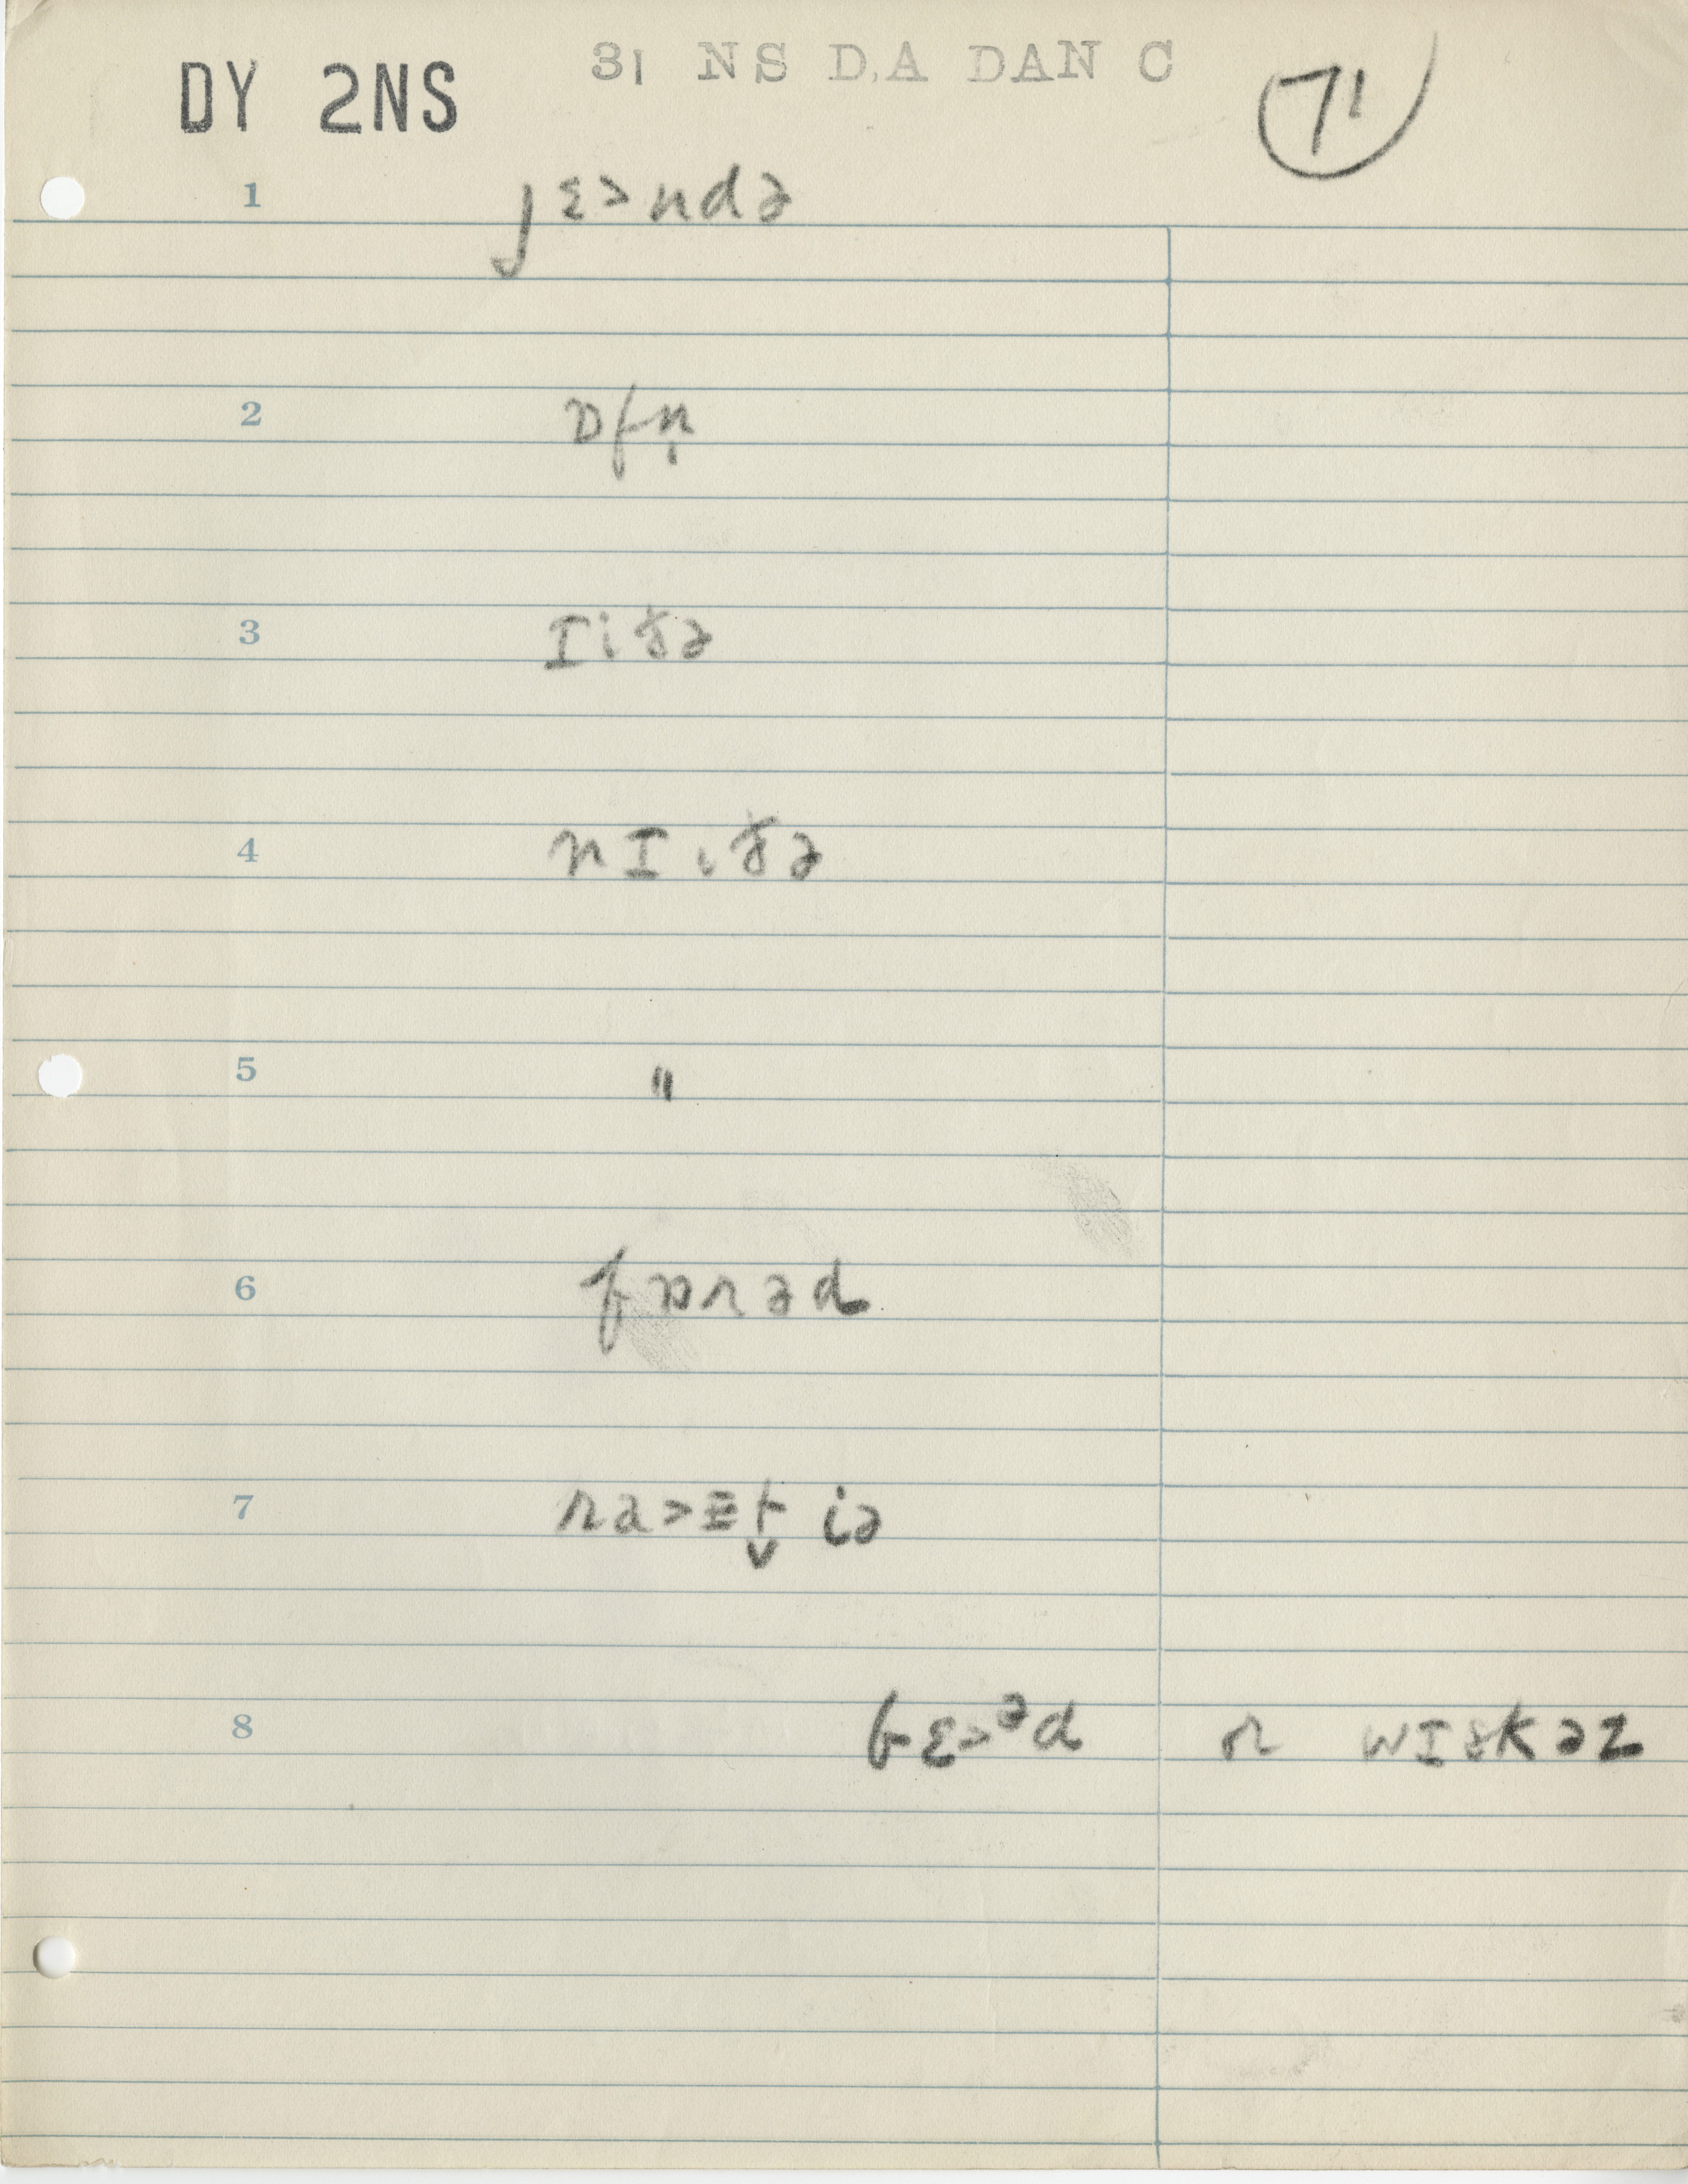 DY 2NS 31 NS D.A DAN C 71
1 jɛ˃ndə
2 ɒfn̩
3 Iiðə
4 nIiðə
5 "
6 fɒrəd
7 ra˃ɛt̬ iə
8 bɛ˃ᵊd or wɪskəz